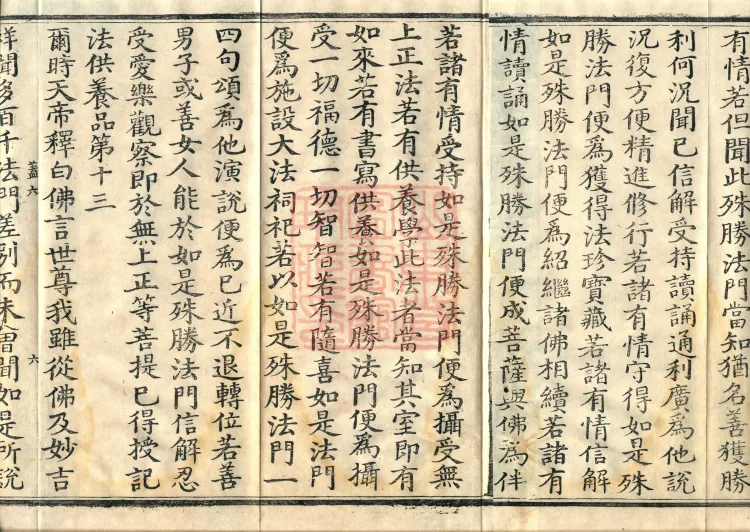 有情若但聞此殊勝法門當知猶名善獲勝
利何況聞已信解受持讀誦通利廣爲他說
況復方便精進修行若諸有情守得如是殊
勝法門便爲獲得法珍寶藏若諸有情信解
如是殊勝法門便爲紹繼諸佛相續若諸有
情讀誦如是殊勝法門便成菩薩與佛爲伴
若諸有情受持如是殊勝法門便爲攝受無
上正法若有供養學此法者當知其室即有
如來若有書寫供養如是殊勝法門便爲攝
受一切福德一切智智若有隨喜如是法門
便爲施設大法祠祀若以如是殊勝法門一
四句頌爲他演說便爲已近不退轉位若善
男子或善女人能於如是殊勝法門信解忍
受愛樂觀察即於無上正等菩提已得授記
法供養品第十三
蓋六
六
爾時天帝釋白佛言世尊我雖從佛及妙吉
祥聞多百千法門差別而未曾聞如是所說